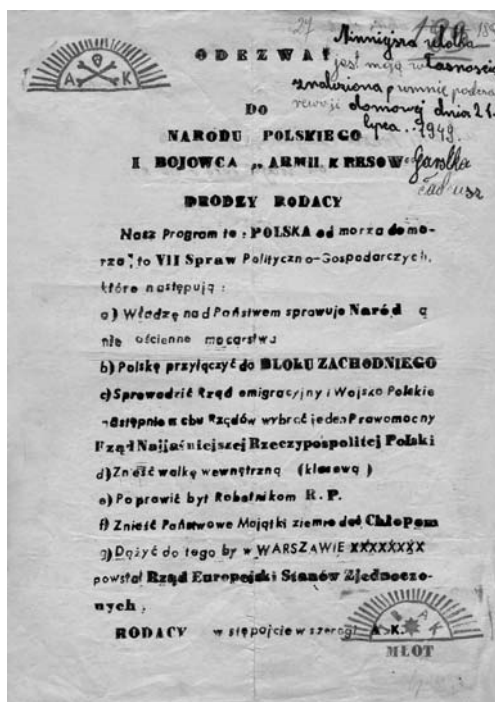 27
Ninniejsza ulotka
jest moją własnością
znaleziona u mnie podczas
rewizji domowej dnia 21.
lipca. 1949.
Gawlka
Tadeusz
A K
ODEZWA!
DO
NARODU POLSKIEGO
I BOJOWCA „ARMII KRESOW"
DRODZY RODACY
Nasz Program to: POLSKA od morza do mo-
rza", to VII Spraw Polityczno-Gospodarczych,
które następują:
a) Władzę nad Państwem sprawuje Naród a
nie ościenne mocarstwa
b) Polskę przyłączyć do BLOKU ZACHODNIEGO
c) Sprowadzić Rząd emigracyjny i Wojsko Polskie
następnie z obu Rządów wybrać jeden Prawomocny
Rząd Najjaśniejszej Rzeczypospolitej Polski
d) Znieść walkę wewnętrzną (klasową)
e) Poprawić byt Robotnikom R. P.
f) Znieść Państwowe Majątki ziemię dać Chłopom
g) Dążyć do tego by w WARSZAWIE XXXXXXXX
powstał Rząd Europejski Stanów Zjednoczo-
nych,
RODACY wstępajcie w szeregi A.K.
A K
MŁOT